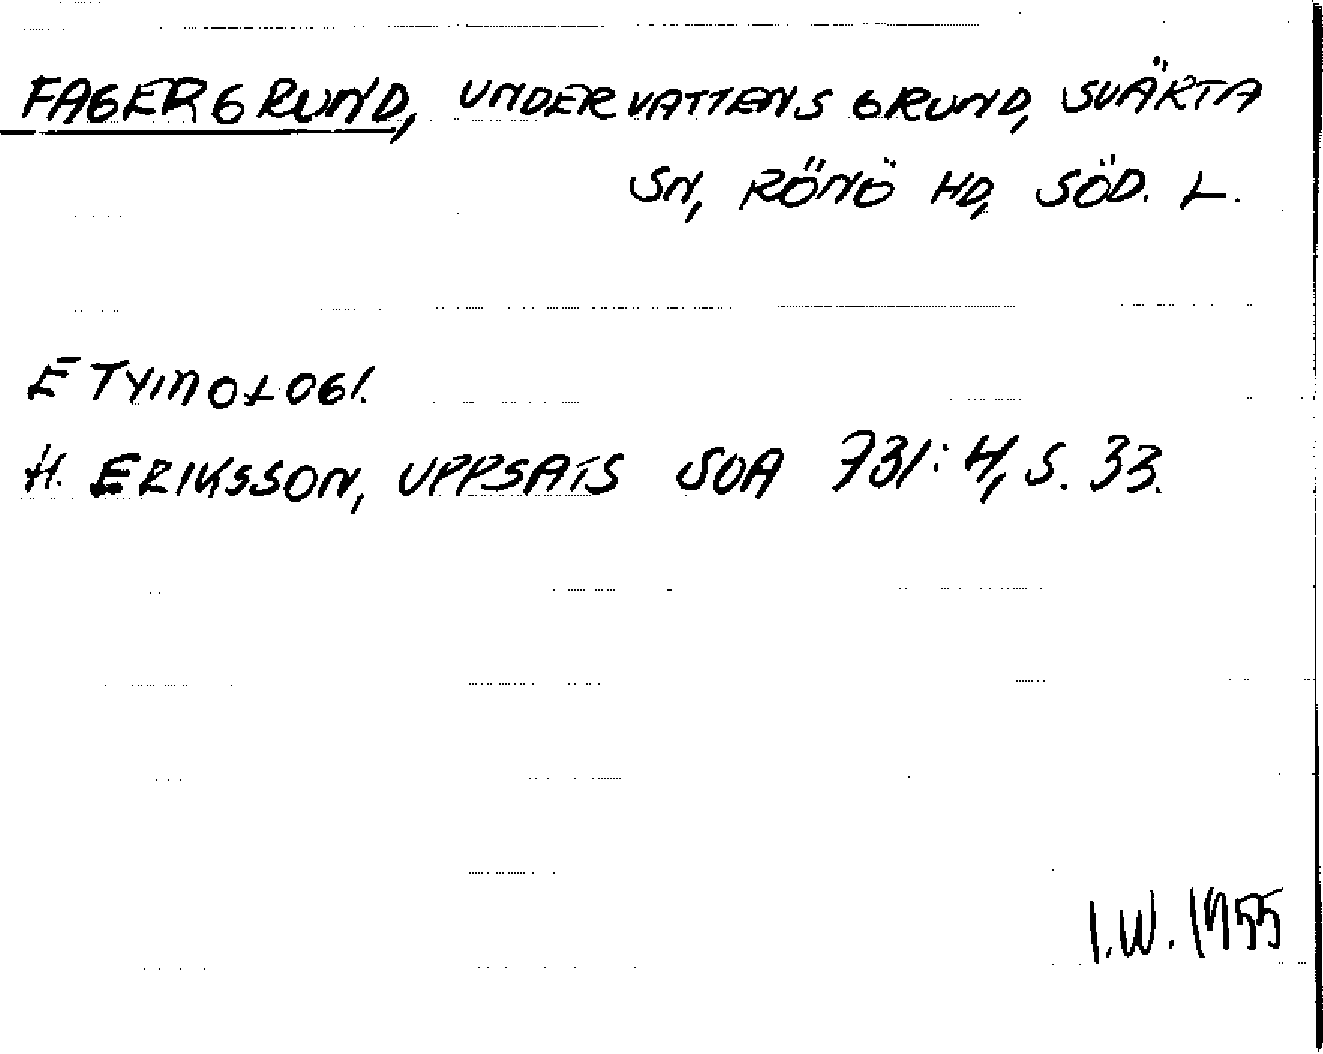 FAGERGRUND, UNDERVATTENSGRUND, SVÄRTA
SN, RÖNÖ HD, SÖD. L.
ETYMOLOGI.
H. ERIKSSON, UPPSATS SOA 731:4, S. 33.
I.W. 1955